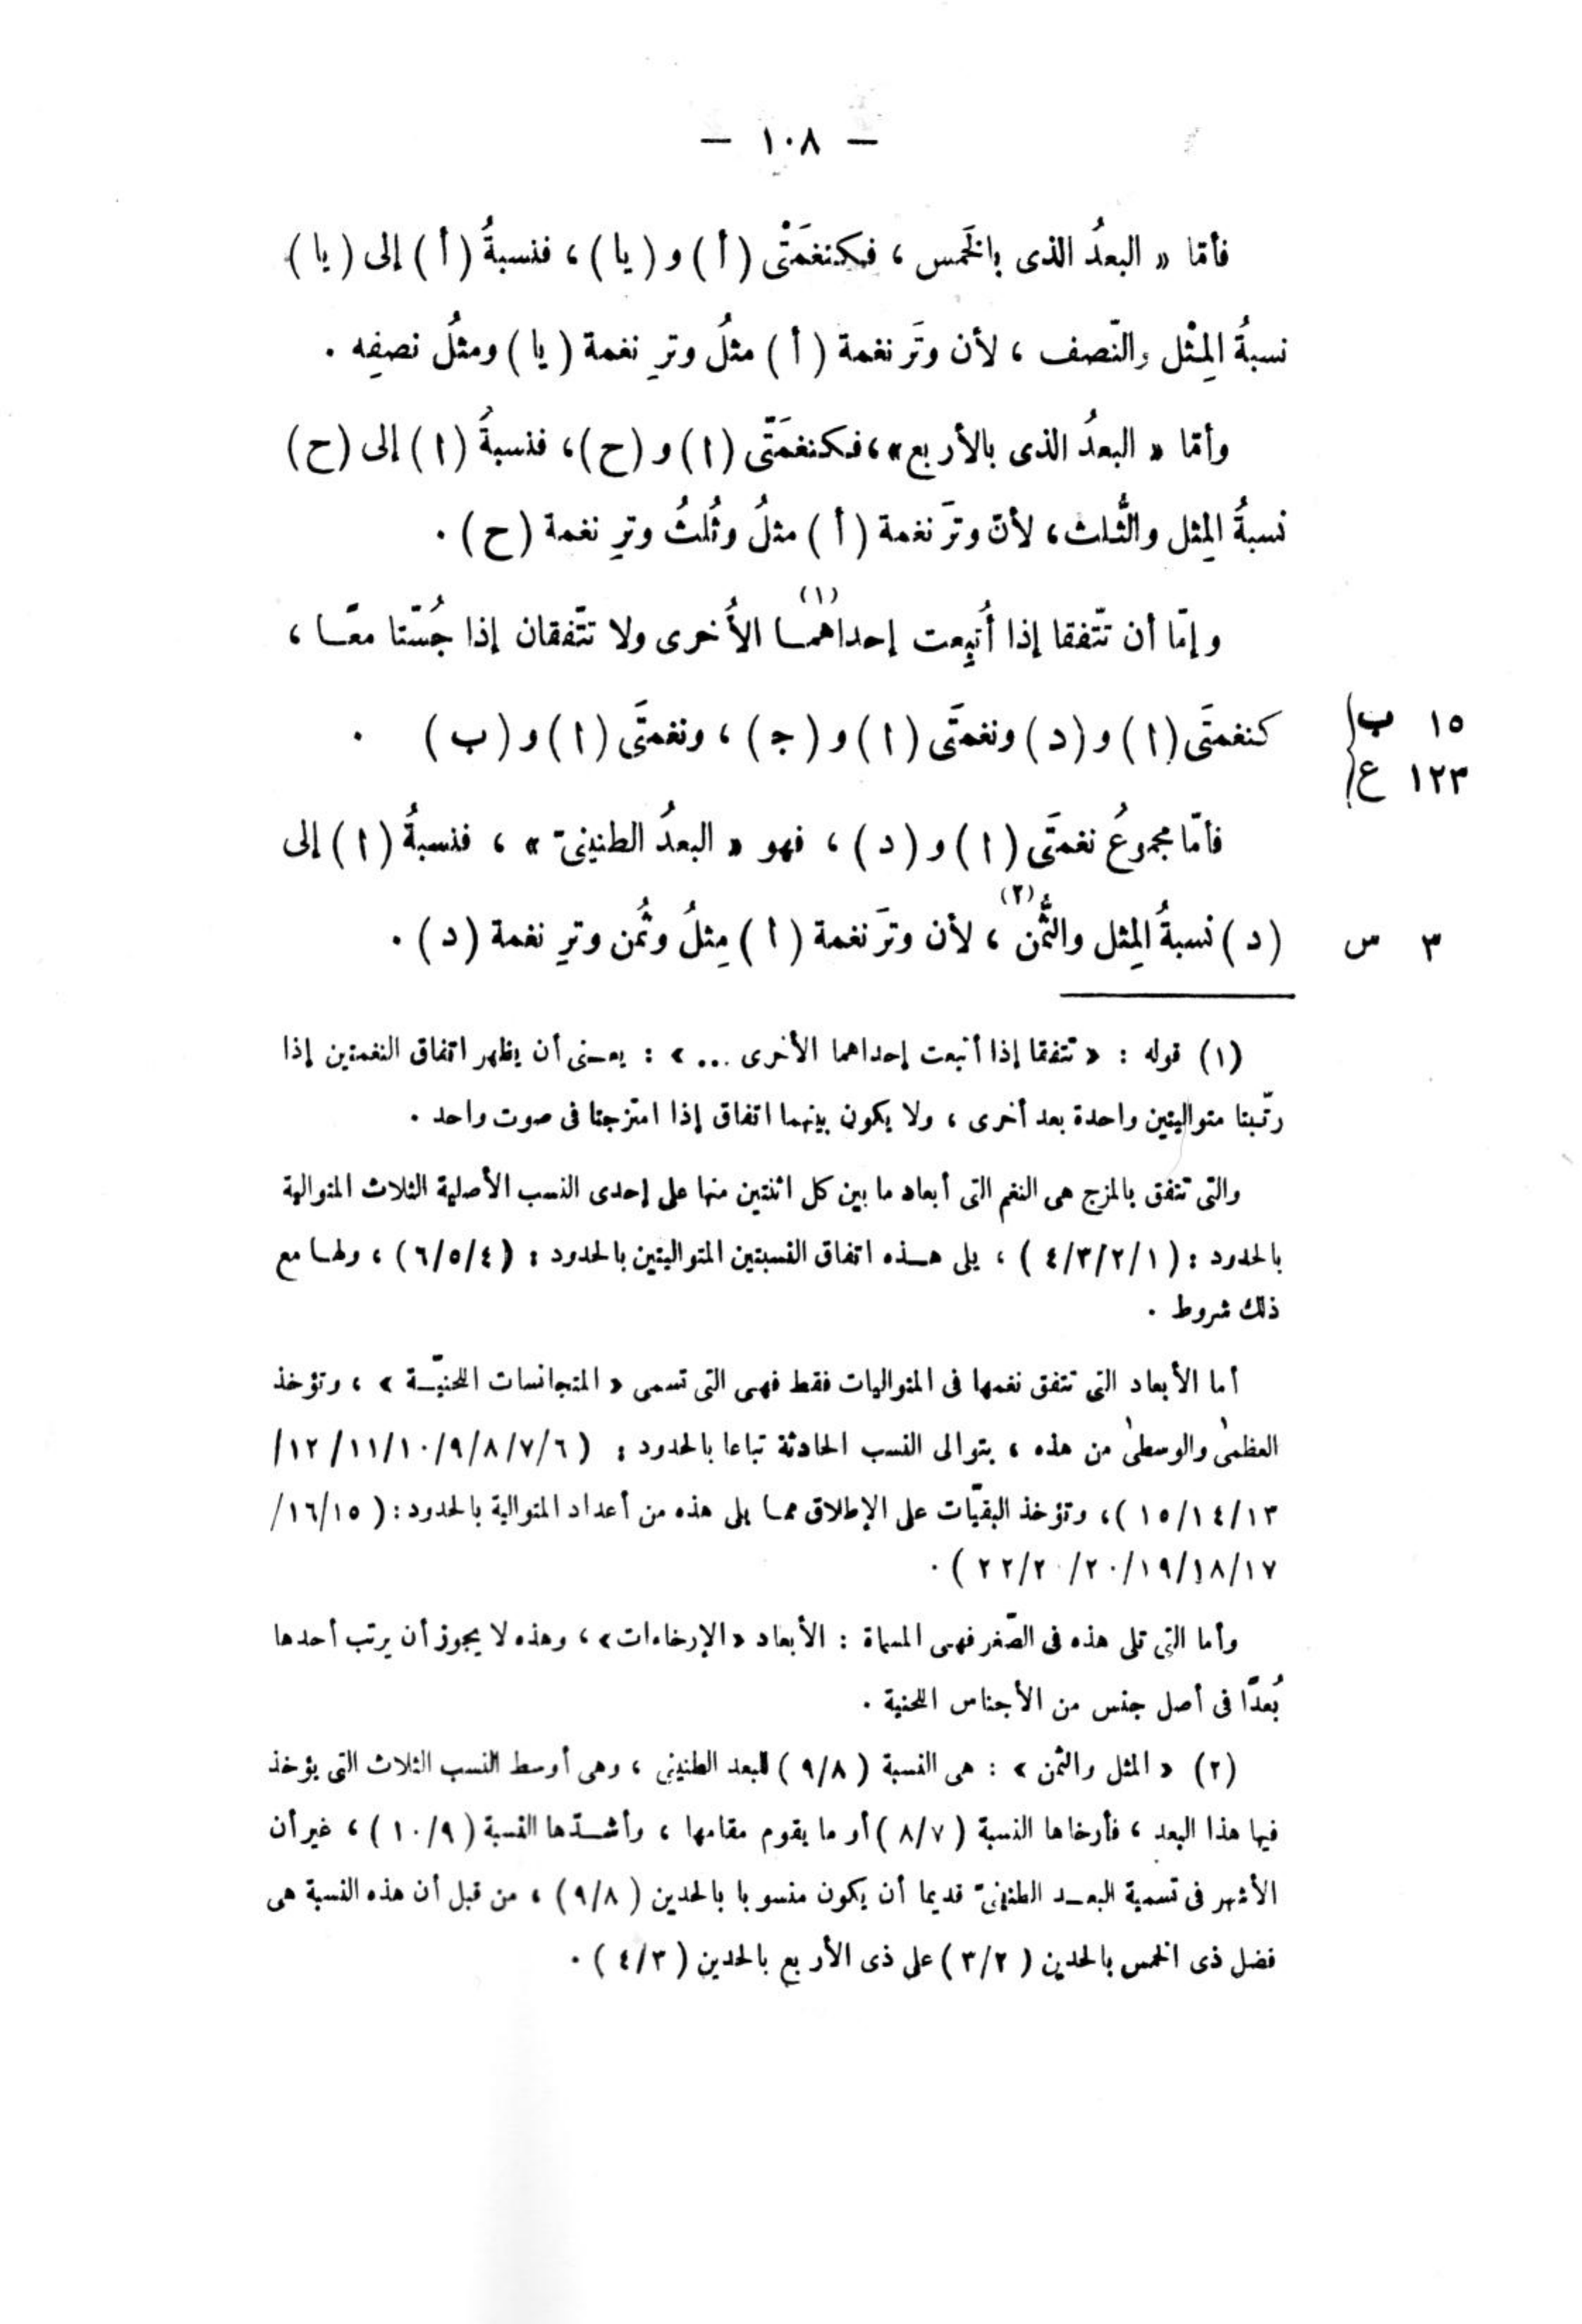 — ١٠٨ —
فأمّا « البعدُ الذى بالخَمس ، فكنغمَتْى ( أ ) و ( يا ) ، فنسبةُ ( أ ) إلى ( يا )
نسبةُ المِثْل والنّصف ، لأن وتَر نغمة ( أ ) مثلُ وترِ نغمة ( يا ) ومثلُ نصفِه .
وأمّا « البعدُ الذى بالأربع » ، فكنغمَتّى ( ا ) و ( ح ) ، فنسبةُ ( ا ) إلى ( ح )
نسبةُ المِثل والثُّلث ، لأنّ وترَ نغمة ( أ ) مثلُ وثُلثُ وترِ نغمة ( ح ) .
وإمّا أن تتّفقا إذا أُتبِعت إحداهمـا (١) الأُخرى ولا تتّفقان إذا جُسّتا معًـا ،
كنغمتَى ( ا ) و ( د ) ونغمتَى ( ا ) و ( جـ ) ، ونغمتَى ( ا ) و ( ب ) .
١٥ ب
١٢٣ ع
فأمّا مجموعُ نغمتَى ( ا ) و ( د ) ، فهو « البعدُ الطنينىّ » ، فنسبةُ ( ا ) إلى
( د ) نسبةُ المِثل والثُّمن (٢) ، لأن وترَ نغمة ( ا ) مِثلُ وثُمن وترِ نغمة ( د ) .
٣ س
(١) قوله : « تتفقا إذا أتبعت إحداهما الأخرى ... » : يعـنى أن يظهر اتفاق النغمتين إذا
رتّبتا متواليتين واحدة بعد أخرى ، ولا يكون بينهما اتفاق إذا امتزجتا فى صوت واحد .
والتى تتفق بالمزج هى النغم التى أبعاد ما بين كل اثنتين منها على إحدى النسب الأصلية الثلاث المتوالية
بالحدود : ( ٤/٣/٢/١ ) ، يلى هـذه اتفاق النسبتين المتواليتين بالحدود : ( ٦/٥/٤ ) ، ولهـا مع
ذلك شروط .
أما الأبعاد التى تتفق نغمها فى المتواليات فقط فهى التى تسمى « المتجانسات اللحنيّـة » ، وتؤخذ
العظمىٰ والوسطىٰ من هذه ، بتوالى النسب الحادثة تباعا بالحدود : ( ١٢/١١/١٠/٩/٨/٧/٦/
١٥/١٤/١٣ ) ، وتؤخذ البقيّات على الإطلاق ممـا يلى هذه من أعداد المتوالية بالحدود : ( ١٦/١٥/
٢٢/٢٠/٢٠/١٩/١٨/١٧ ) .
وأما التى تلى هذه فى الصّغر فهى المسماة : الأبعاد « الإرخاءات » ، وهذه لا يجوز أن يرتب أحدها
بُعدًا فى أصل جنس من الأجناس اللحنية .
(٢) « المثل والثمن » : هى النسبة ( ٩/٨ ) للبعد الطنينى ، وهى أوسط النسب الثلاث التى يؤخذ
فيها هذا البعد ، فأرخاها النسبة ( ٨/٧ ) أو ما يقوم مقامها ، وأشـدّها النسبة ( ١٠/٩ ) ، غير أن
الأشهر فى تسمية البعـد الطنينىّ قديما أن يكون منسوبا بالحدين ( ٩/٨ ) ، من قبل أن هذه النسبة هى
فضل ذى الخمس بالحدين ( ٣/٢ ) على ذى الأربع بالحدين ( ٤/٣ ) .